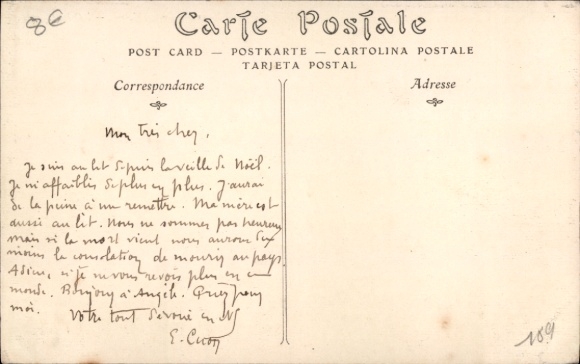 8€
Carte Postale
POST CARD — POSTKARTE — CARTOLINA POSTALE
TARJETA POSTAL
Correspondance
Adresse
Mon très cher,
Je suis au lit depuis la veille de Noël.
Je m'affaiblis de plus en plus. J'aurai
de la peine à me remettre. Ma mère est
aussi au lit. Nous ne sommes pas heureux
mais si la mort vient nous aurons du
moins la consolation de mourir au pays
Adieu, si je ne vous revois plus en ce
monde. Bonjour à Angèle. Priez pour
moi.
Votre tout dévoué en
E.
109